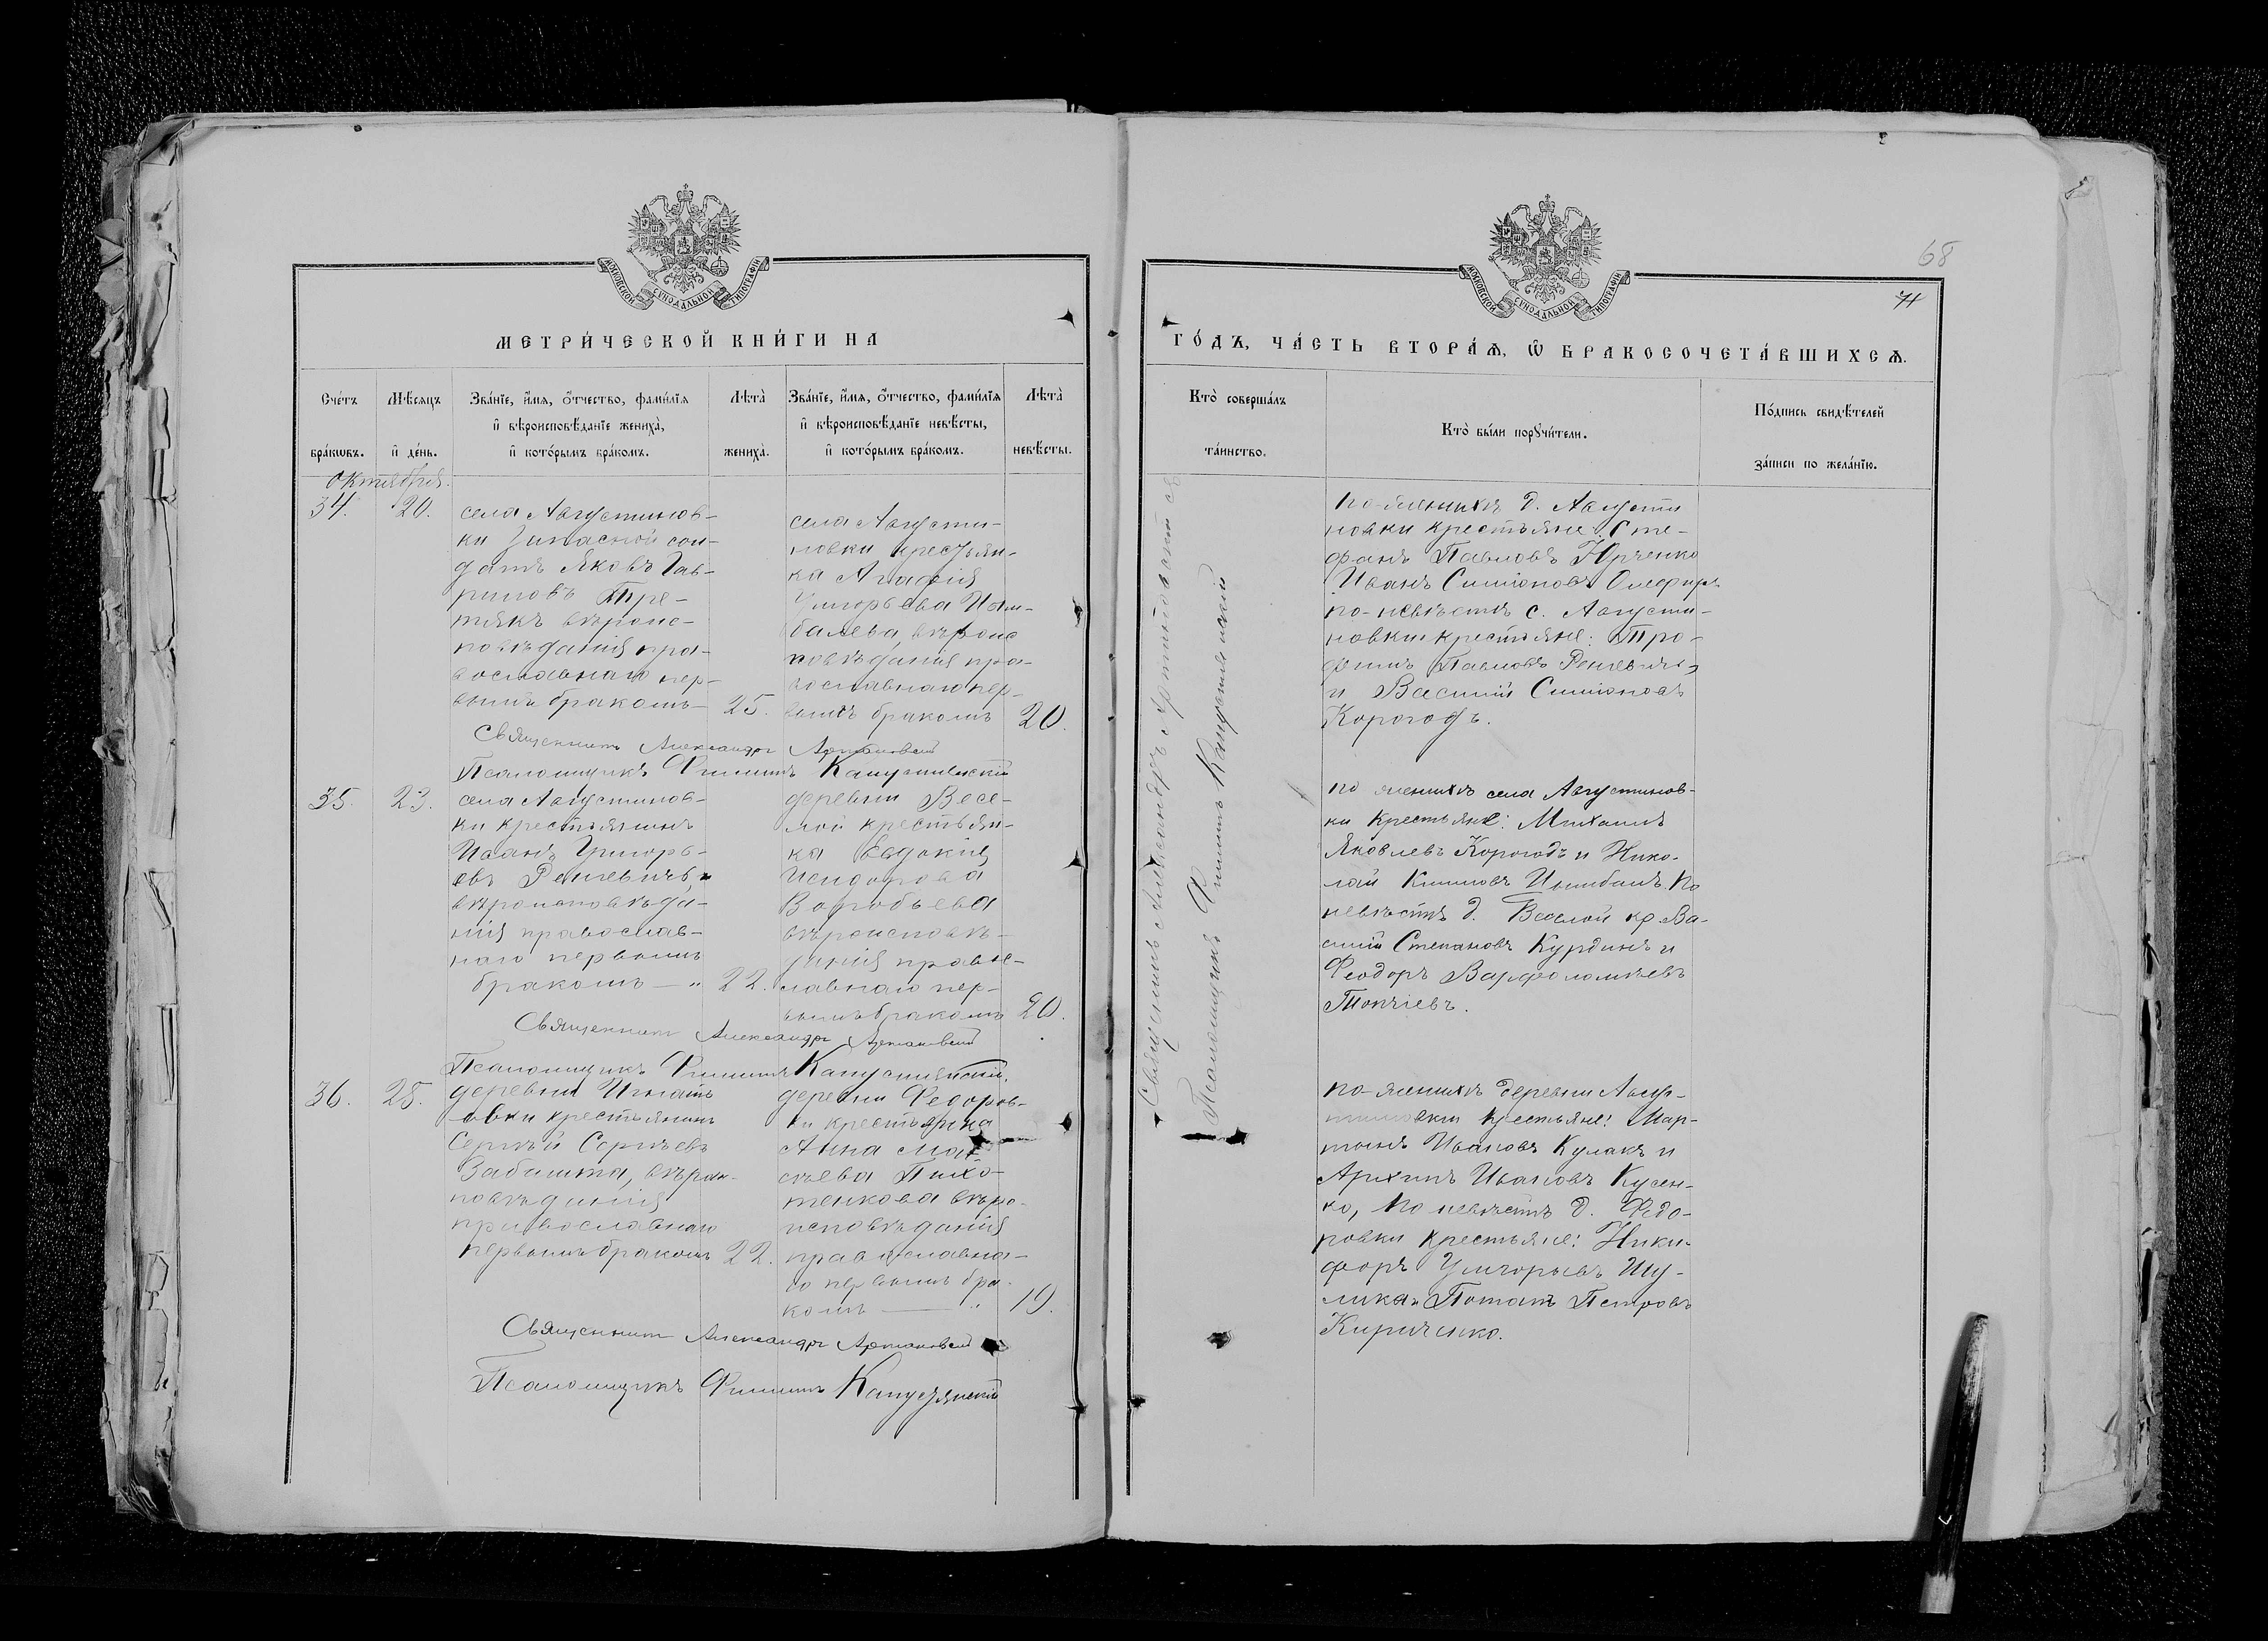 МОСКОВСКОЙ СѴНОДАЛЬНОЙ ТИПОГРАФІИ
МЕТРИ́ЧЕСКОЙ КНИ́ГИ НА
Сче́тъ бра́кωвъ.
Мѣ́сяцъ и҆ де́нь.
Зва́нїе, и҆́мѧ, ѻ҆́тчество, фами́лїѧ
и҆ вѣроисповѣ́данїе жениха̀,
и҆ кото́рымъ бра́комъ.
Лѣта̀ жениха̀.
Зва́нїе, и҆́мѧ, ѻ҆́тчество, фами́лїѧ
и҆ вѣроисповѣ́данїе невѣ́сты,
и҆ кото́рымъ бра́комъ.
Лѣта̀ невѣ́сты.
Октября.
34.
20.
села Августинов-
ки Запасной сол-
датъ Яковъ Гав-
риловъ Тре-
тякъ вѣроис-
повѣданія пра-
вославнаго пер-
вымъ бракомъ
25.
села Августи-
новки крестьян-
ка Агафія
Григорьева
вѣроис
повѣданія пра-
вославнаго пер-
вымъ бракомъ
20.
Священникъ Александръ Артановскій
Псаломщикъ Филиппъ Капустянскій
35.
23.
села Августинов-
ки крестьянинъ
Иванъ Григорь-
евъ Реллевичъ,
вѣроисповѣда-
нія православ-
наго первымъ
бракомъ — "
22.
деревни Весе-
лой крестьян-
ка Евдокія
Исидорова
Воробьева
вѣроисповѣ-
данія право-
славнаго пер-
вымъ бракомъ
20.
Священникъ Александръ Артановскій
Псаломщикъ Филиппъ Капустянскій.
36.
28.
деревни Игнать
евки крестьянинъ
Сергѣй Сергѣевъ
Забашта, вѣроис-
повѣданія
православнаго
первымъ бракомъ
22.
деревни Федоров-
ки крестьянка
Анна Мат-
ѳѣева Пихо-
тенкова вѣро-
исповѣданія
православна-
го первымъ бра-
комъ — "
19.
Священникъ Александръ Артановскій
Псаломщикъ Филиппъ Капустянскій
68
71
МОСКОВСКОЙ СѴНОДАЛЬНОЙ ТИПОГРАФІИ
ГО́ДЪ, ЧА́СТЬ ВТОРА́Ѧ, Ѽ БРАКОСОЧЕТА́ВШИХСѦ.
Кто̀ соверша́лъ та́инство.
Кто̀ бы́ли порꙋчи́тели.
По́дпись свидѣ́телей
за́писи по жела́нїю.
Священникъ Александръ Артановскій
Псаломщикъ Филиппъ Капустянскій
по-женихѣ д. Августи
новки крестьяне: Сте-
фанъ Павловъ Юрченко
Иванъ Симіоновъ Олефиръ
по-невѣстѣ с. Августи-
новки крестьяне: Тро-
фимъ Павловъ Реллевичъ,
и Василій Симіоновъ
Корогодъ.
по женихѣ села Августинов-
ки крестьяне: Михаилъ
Яковлевъ Корогодъ и Нико-
лай Климовъ Цымбалъ. По
невѣстѣ д. Веселой кр. Ва-
силій Степановъ Курдинъ и
Феодоръ Варфоломѣевъ
Топчіевъ.
по-женихѣ деревни Авгус-
тиновки крестьяне: Мар-
тынъ Ивановъ Кулакъ и
Архипъ Ивановъ Кусен-
ко, по невѣстѣ д. Федо-
ровки крестьяне: Ники-
форъ Григорьевъ Шу-
лика и Потапъ Петровъ
Кириченко.